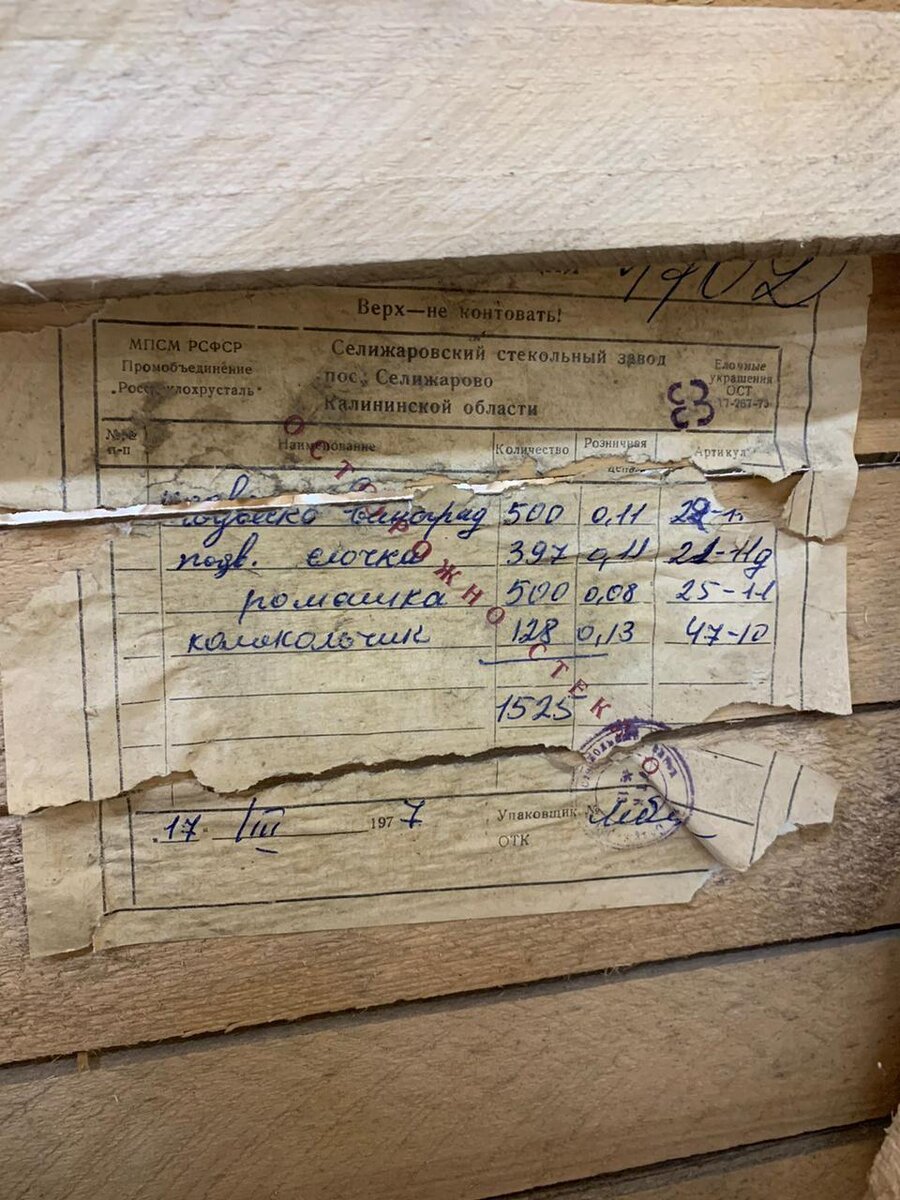 1702
Верх—не контовать!
МПСМ РСФСР
Промобъединение
„Росстеклохрусталь"
Селижаровский стекольный завод
пос. Селижарово
Калининской области
Елочные
украшения
ОСТ
17-267-73
№№
п-п
Наименование
Количество
Розничная
цена
Артикул
подв.
виноград 500 0,11
подв. елочка 397 0,11 21-11д
ромашка 500 0,08 25-11
колокольчик 128 0,13 47-10
1525
ОСТОРОЖНО СТЕКЛО
17 III 1977
Упаковщик №
ОТК